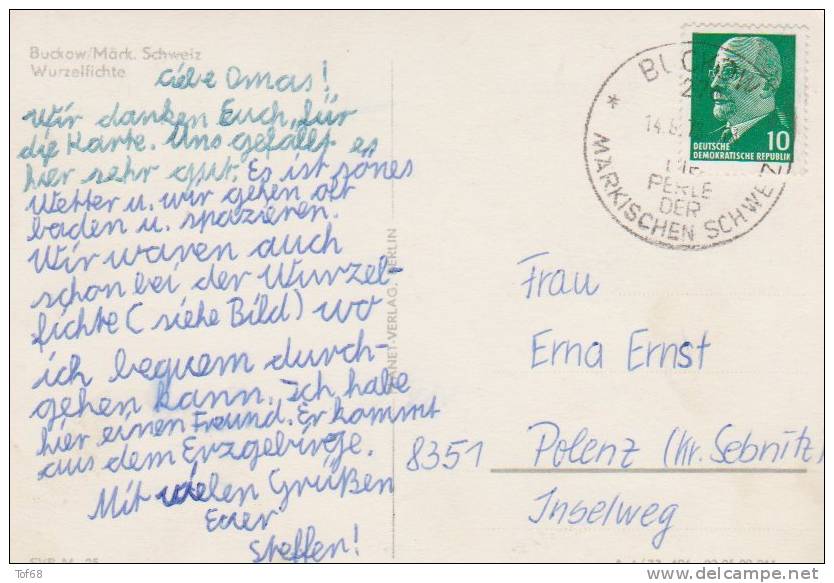 Buckow/Märk. Schweiz
Wurzelfichte
Liebe Omas!
Wir danken Euch, für
die Karte. Uns gefällt es
hier sehr gut. Es ist sönes
Wetter u. wir gehen oft
baden u. spazieren.
Wir waren auch
schon bei der Wurzel-
fichte (siehe Bild) wo
ich bequem durch-
gehen kann. Ich habe
hier einen Freund. Er kommt
aus dem Erzgebirge.
Mit vielen Grüßen
Euer
Steffen!
PLANET-VERLAG, BERLIN
BUCKOW
DIE
PERLE
DER
MÄRKISCHEN SCHWEIZ
10
DEUTSCHE
DEMOKRATISCHE REPUBLIK
Frau
Erna Ernst
8351 Polenz (Kr. Sebnitz)
Inselweg
Tof68
delcampe.net